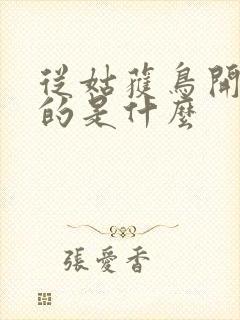 從姑獲鳥開
的是什麼
張愛香